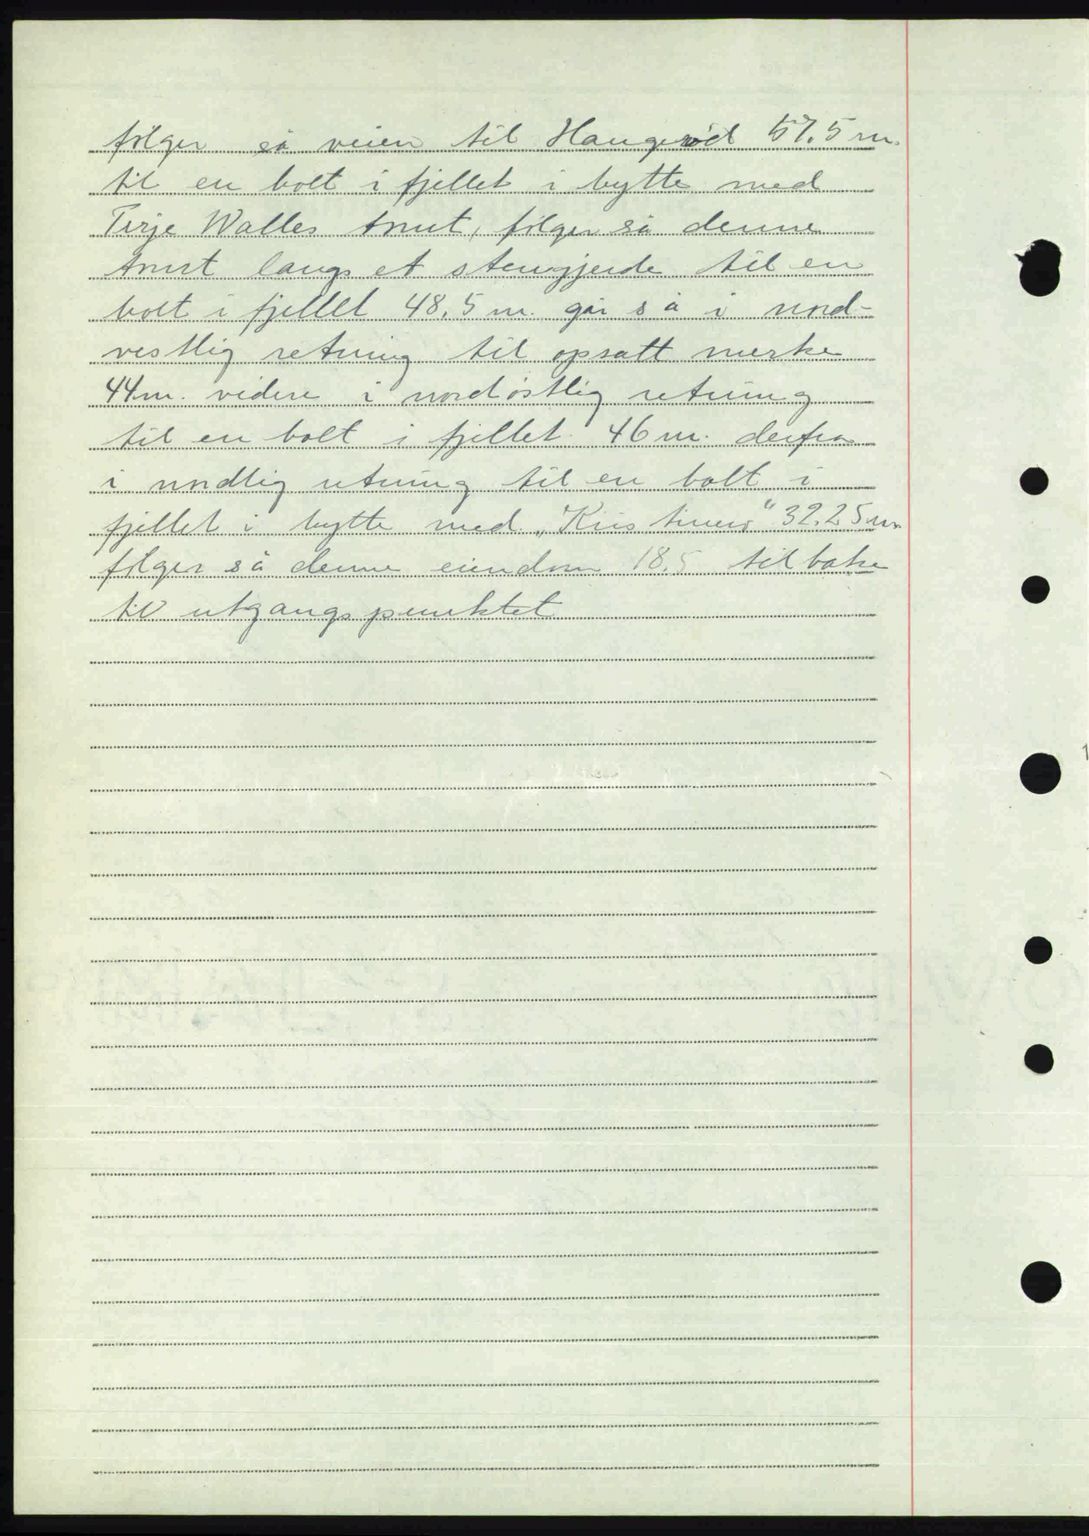 følger så veien til Haugerød 57.5 m.
til en bolt i fjellet i bytte med
Terje Walles tomt, følger så denne
tomt langs et stengjerde til en
bolt i fjellet 48.5 m. går så i nord-
vestlig retning til opsatt merke
44 m. videre i nordøstlig retning
til en bolt i fjellet 46 m. derfra
i nordlig retning til en bolt i
fjellet i bytte med „ “ 32.25 m
følger så denne eiendom 18.5 tilbake
til utgangspunktet
1